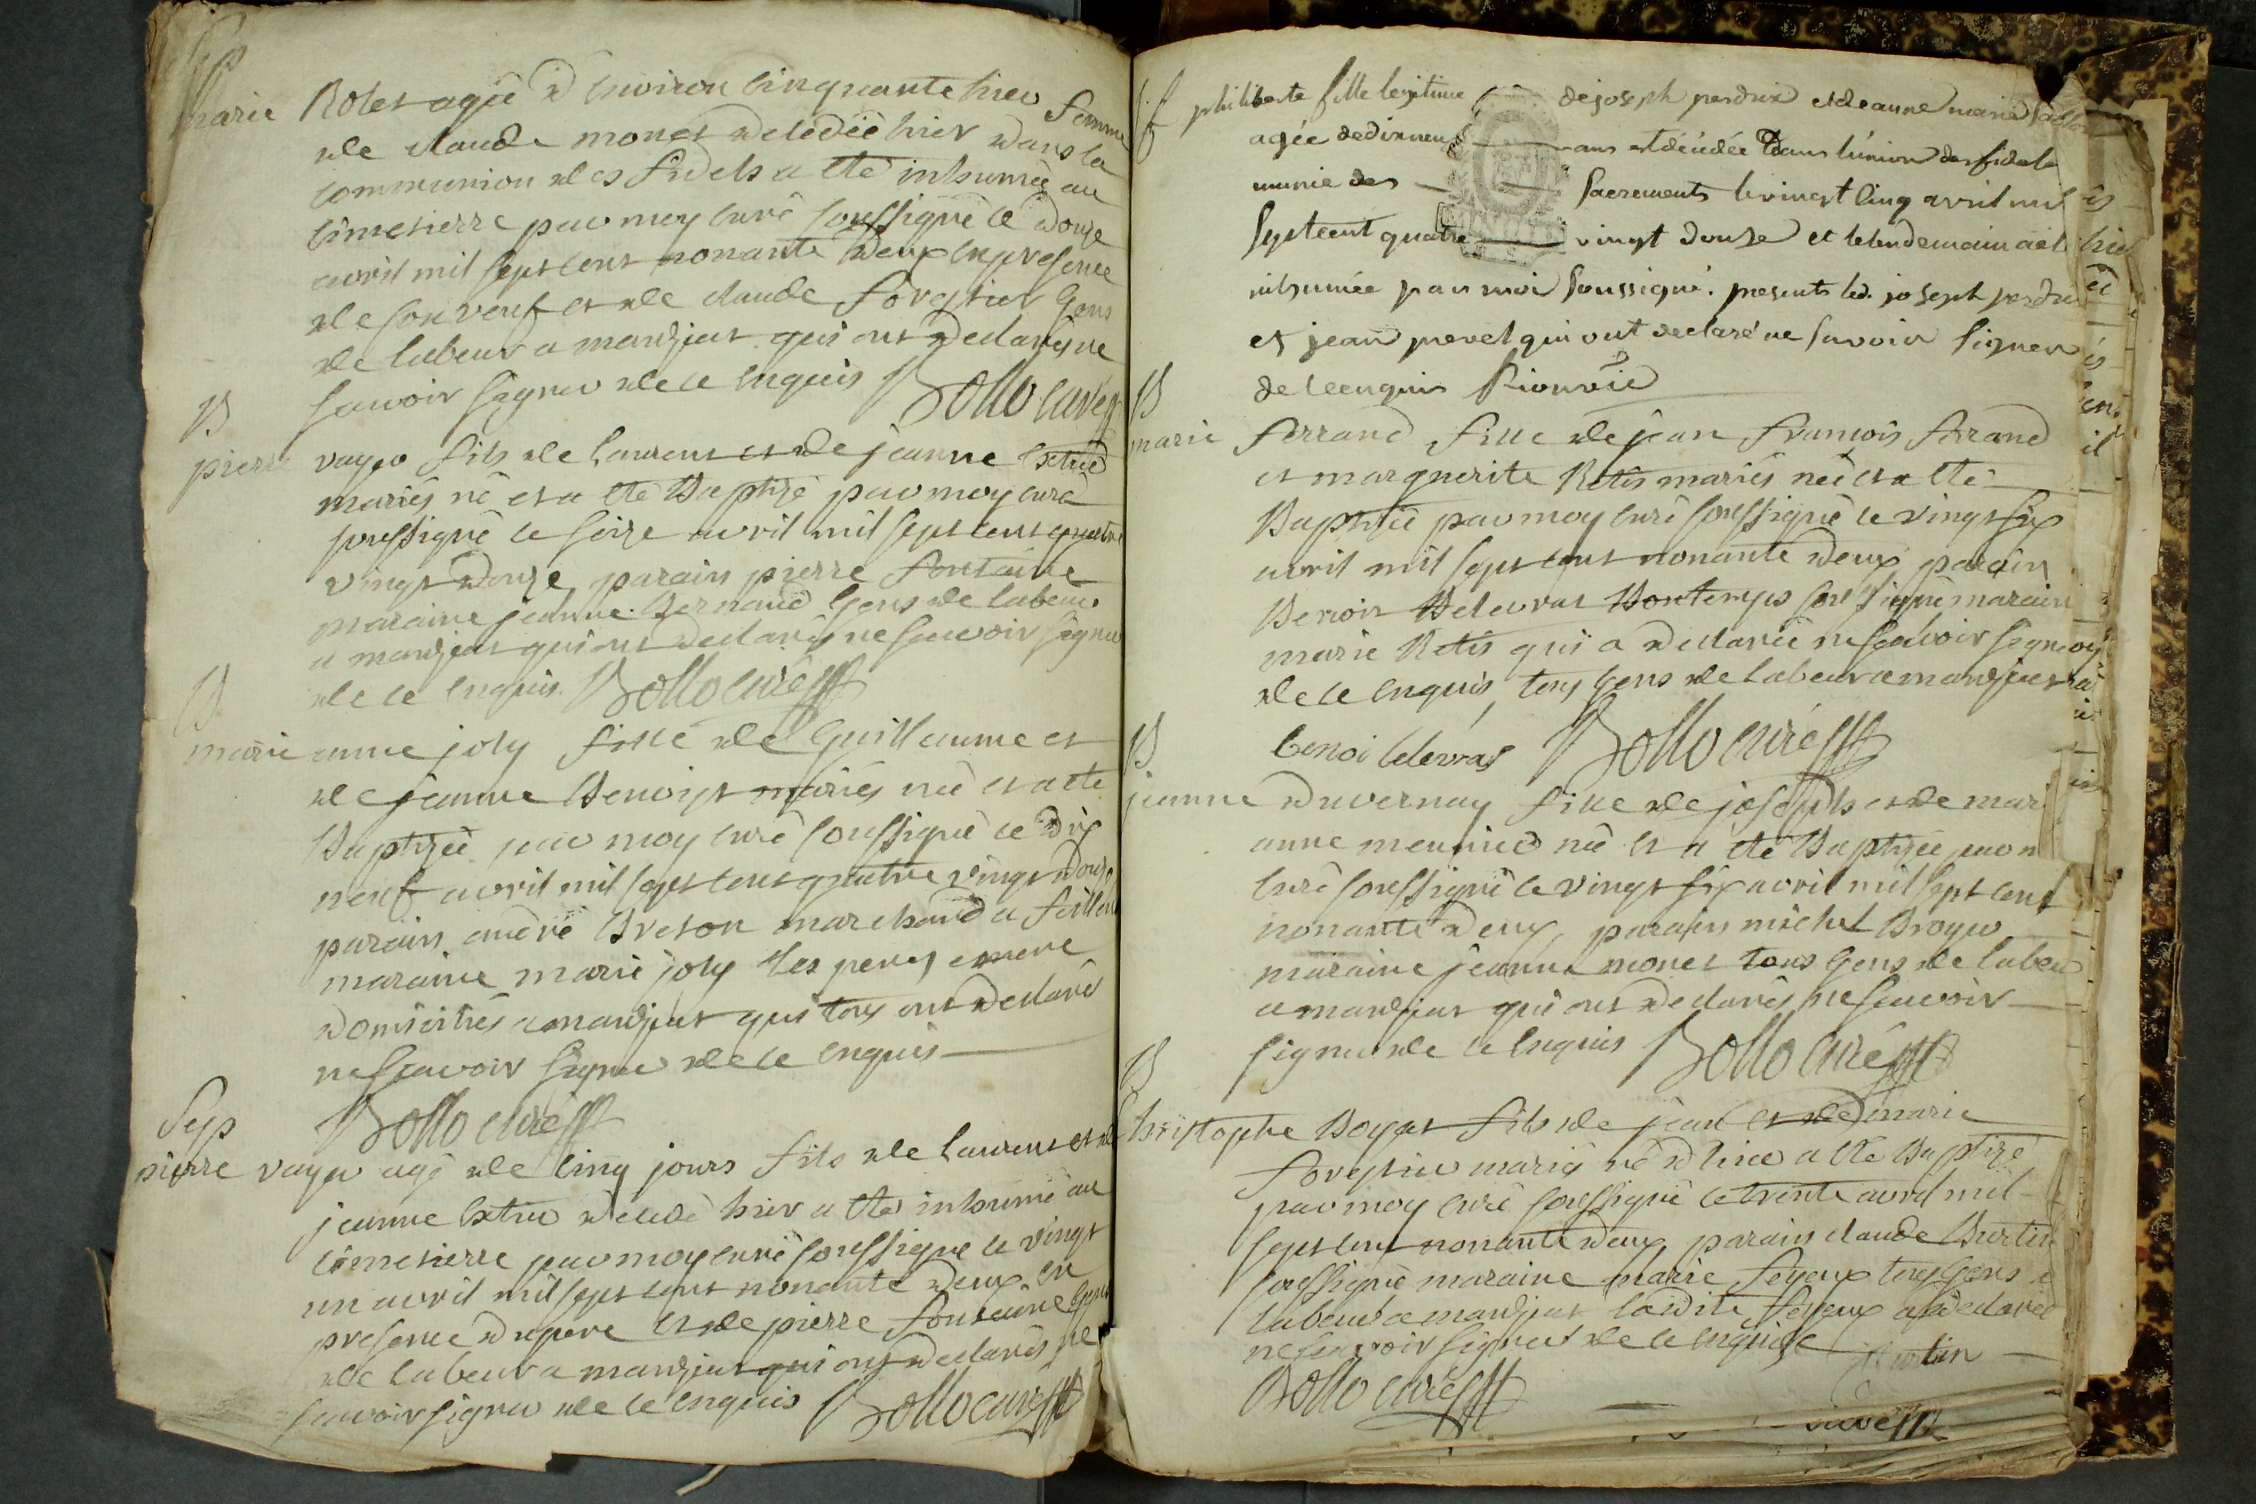 Sep
marie Rolet agée d'environ cinquante trois femme
de claude monet decedée hier dans la
communion des fidels a eté inhumée au
cimetierre par moy curé soussigné le douze
avril mil sept cent nonante deux en presence
de son veuf et de claude forestier gens
de labeur a mardjat qui ont declarés ne
savoir signer de ce enquis Bollo curé
B
pierre vayer fils de laurent et de jeanne
mariés né et a eté baptizé par moy curé
soussigné le seize avril mil sept cent quatre
vingt douze, parain pierre fontaine
maraine jeanne Bernand gens de labeur
a mardjat qui ont declarés ne scavoir signer
de ce enquis Bollo curé
B
marie anne joly fille de guillaume et
de jeanne Benoist mariés née et a eté
Baptizée par moy curé soussigné le dix
neuf avril mil sept cent quatre vingt douze
parain andré Breton marchand a
maraine marie joly les pere et mere
domiciliés a mardjat qui tous ont declarés
ne scavoir signer de ce enquis
Sep Bollo curé
pierre vayer agé de cinq jours fils de laurent et de
jeanne decedé hier a eté inhumé au
cimetierre par moy curé soussigné le vingt
un avril mil sept cent nonante deux en
presence du pere et de pierre fontaine gens
de labeur a mardjat qui ont declarés ne
savoir signer de ce enquis Bollo curé
philiberte fille legitime de joseph perdrix et de anne marie
agée de dix neuf ans est décédée dans l'union des fideles
munie des sacrements le vingt cinq avril mil
sept cent quatre vingt douze et le lendemain a été
inhumée par moi soussigné. presents led. joseph perdrix
et jean prevel qui ont declaré ne savoir signer
de ce enquis
B
marie ferrand fille de jean françois ferrand
et marguerite Retis mariés née et a eté
Baptizée par moy curé soussigné le vingt six
avril mil sept cent nonante deux parain
Benoit Delevras Bontemps soussigné maraine
marie Retis qui a declarée ne scavoir signer
de ce enquis, tous gens de labeur a mardjat
benoi delevras Bollo curé
B
jeanne duvernay fille de joseph et de marie
anne meunier née et a eté Baptizée par moy
curé soussigné le vingt six avril mil sept cent
nonante deux, parain michel Broyer
maraine jeanne monet tous gens de labeur
a mardjat qui ont declarés ne scavoir
signer de ce enquis Bollo curé
B
Christophe Boyat fils de jean et de marie
forestier mariés né d'hier a eté baptizé
par moy curé soussigné le trente avril mil
sept cent nonante deux, parain claude Burtin
soussigné maraine marie feyeux tous gens de
labeur a mardjat ladite feyeux a declarée
ne scavoir signer de ce enquise Burtin
Bollo curé